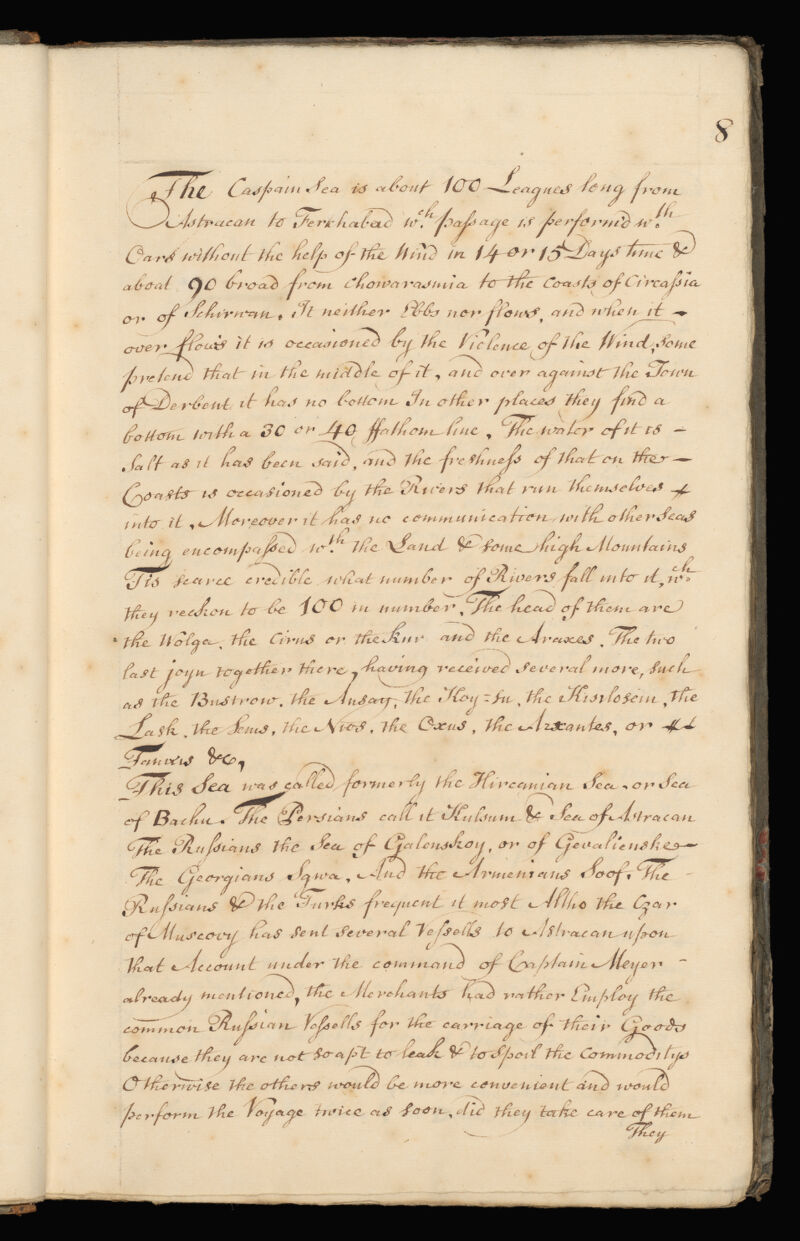 8
The Caspain Sea is about 100 Leagues long from
Astracan to Ferrhabad wch. passage is perform'd wth.
Oars without the help of the Wind in 14 or 15 Days time &
about 90 broad from Chowarasmia to the Coasts of Circassia
or of Schirwan. It neither Ebbs nor flows, and when it -
over flows it is occasioned by the Violence of the Wind, some
pretend that in the middle of it, and over against the Town
of Derbent it has no bottom In other places they find a
bottom with a 30 or 40 ffathom line. The water of it is -
Salt as it has been said, and the freshness of that on the -
Coasts is occasioned by the Rivers that run themselves
into it, Moreover it has no communication with other Seas
being encompassed wth. the Land & some high Mountains
Tis scarce credible what number of Rivers fall into it, wch.
they reckon to be 100 in number. The head of them are
the Wolga, the Cirus or the Kur and the Araxes. The two
last joyn together there, having received several more, such
as the Bustrow, the Ansay, the Koy=su, the Kisilosein, the
Lask, the Sems, the Nios, the Oxus, the Arxantes, or
Tanais &c,
This Sea was called formerly the Hircanian Sea, or Sea
of Bachu. The Persians call it Kulsum & Sea of Astracan
The Russians the Sea of Galenskoy, or of Gevalienske -
The Georgians Sgwa, And the Armenians Soof. The -
Russians & the Turks frequent it most Altho the Czar
of Muscovy has sent several Vessells to Astracan upon
that Account under the command of Captain Meyer -
already mentioned, the Merchants had rather Employ the
common Russian Vessells for the carriage of their Goods
because they are not so apt to leak & to spoil the Commoditys
Otherwise the others would be more convenient and would
perform the Voyage twice as soon, did they take care of them
They